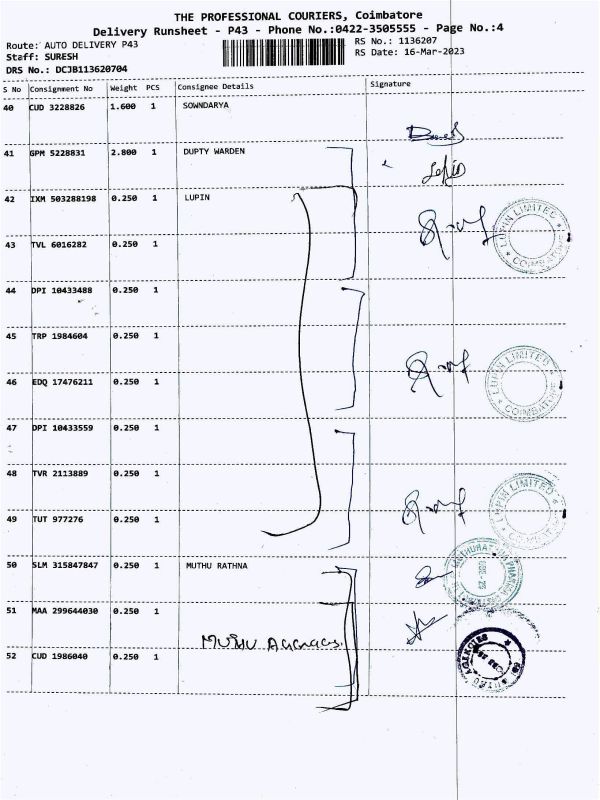 THE PROFESSIONAL COURIERS, Coimbatore
Delivery Runsheet - P43 - Phone No.:0422-3505555 - Page No.:4
Route: AUTO DELIVERY P43
Staff: SURESH
DRS No.: DCJB113620704
RS No.: 1136207
RS Date: 16-Mar-2023
S No Consignment No Weight PCS Consignee Details Signature
40 CUD 3228826 1.600 1 SOWNDARYA
41 GPM 5228831 2.800 1 DUPTY WARDEN
42 IXM 503288198 0.250 1 LUPIN
LUPIN LIMITED
COIMBATORE
43 TVL 6016282 0.250 1
44 DPI 10433488 0.250 1
45 TRP 1984604 0.250 1
46 EDQ 17476211 0.250 1
LUPIN LIMITED
COIMBATORE
47 DPI 10433559 0.250 1
48 TVR 2113889 0.250 1
LUPIN LIMITED
COIMBATORE
49 TUT 977276 0.250 1
50 SLM 315847847 0.250 1 MUTHU RATHNA
51 MAA 299644030 0.250 1
Muthu Agencies
52 CUD 1986040 0.250 1
AGENCIES